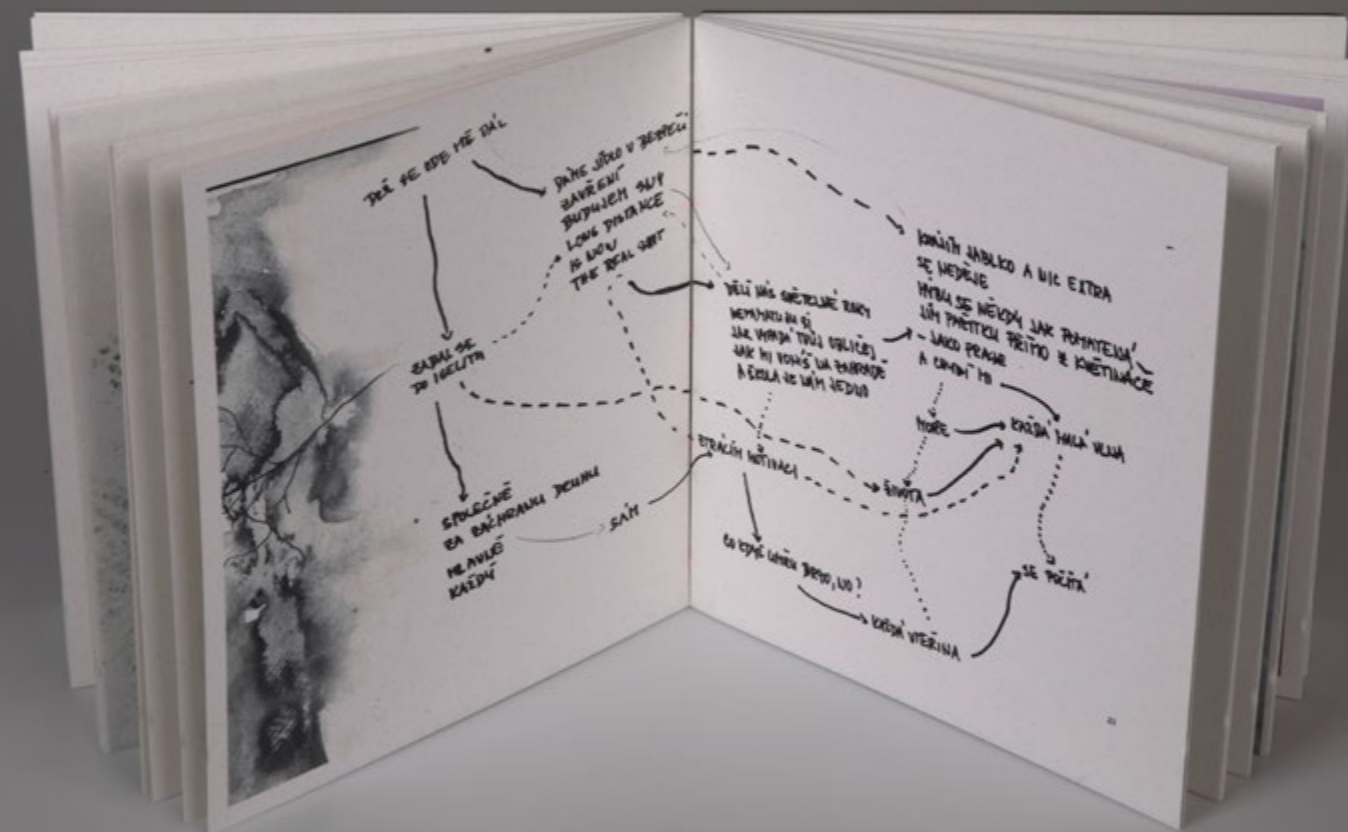 DRŽ SE ODE MĚ DÁL
DÁME JÍDLO V BEZPEČÍ
ZAVŘENÍ
BUDUJEM SNY
LONG DISTANCE
IS NOW
THE REAL SHIT
ZABAL SE
DO IGELITU
SPOLEČNĚ
ZA ZÁCHRANU DRUHU
HLAVNĚ
KAŽDÝ
SÁM
DĚLÍ NÁS SVĚTELNÉ ROKY
NEPAMATUJU SI
JAK VYPADÁ TVŮJ OBLIČEJ
JAK MI VONÍŠ NA ZAHRADĚ
A ŠKOLA JE NÁM JEDNO
ZTRÁCÍM MOTIVACI
CO KDYŽ UMŘU BRZO, NO?
KAŽDÁ VTEŘINA
KRÁJÍM JABLKO A NIC EXTRA
SE NEDĚJE
HÝBU SE NĚKDY JAK POMATENÁ
JÍM PAŽITKU PŘÍMO Z KVĚTINÁČE
- JAKO PRASE
A CHYBÍ MI
MOŘE
KAŽDÁ MALÁ VLNA
ŽIVOTA
SE POČÍTÁ